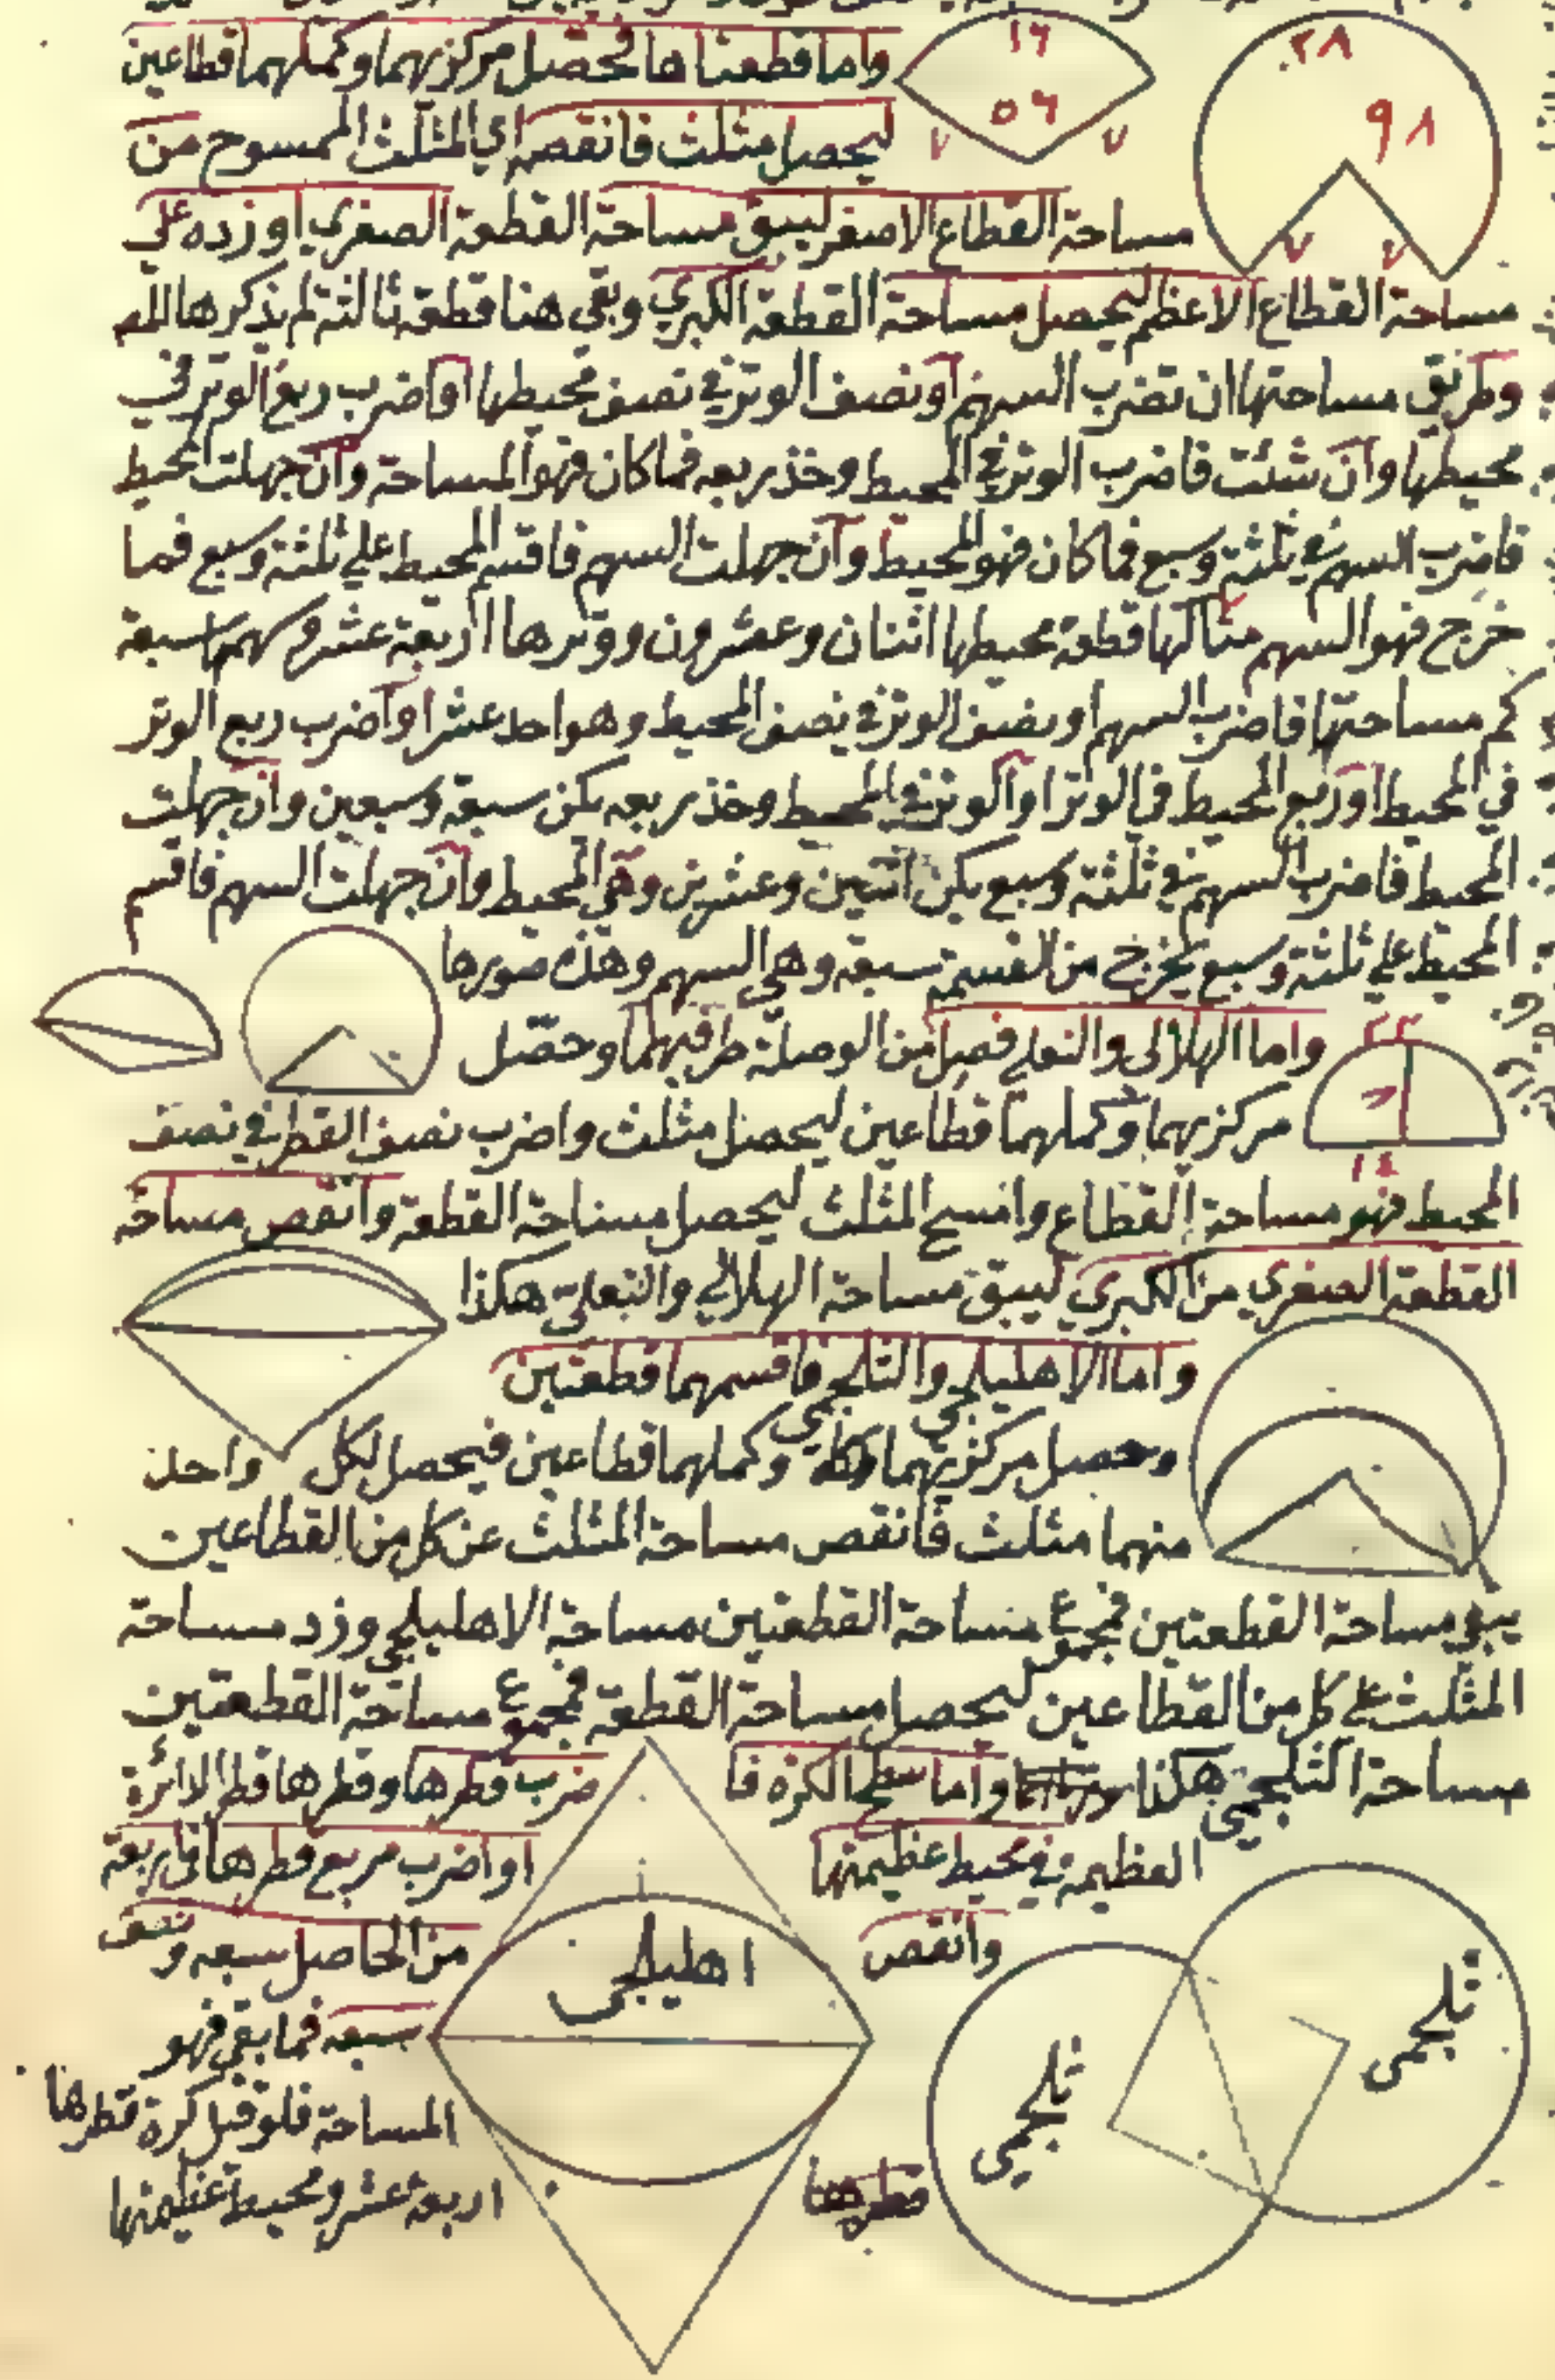 واما قطعتاها فحصل مركزيهما وكملهما قطاعين
١٦
٢٨
٥٦
٩٨
٧ ٧
٧ ٧
ليحصل مثلث فانقصه اي المثلث الممسوح من
مساحة القطاع الاصغر ليبقى مساحة القطعة الصغرى او زده على
مساحة القطاع الاعظم ليحصل مساحة القطعة الكبرى وبقى هنا قطعة ثالثة لم يذكرها المص
وطريق مساحتها ان تضرب السهم او نصف الوتر في نصف محيطها او اضرب ربع الوتر في
محيطها وان شئت فاضرب الوتر في المحيط وخذ ربعه فما كان فهو المساحة وان جهلت المحيط
فاضرب السهم في ثلثة وسبع فما كان فهو المحيط وان جهلت السهم فاقسم المحيط على ثلثة وسبع فما
خرج فهو السهم مثالها قطعة محيطها اثنان وعشرون ووترها اربعة عشر وسهمها سبعة
كم مساحتها فاضرب السهم او نصف الوتر في نصف المحيط وهو احد عشر او اضرب ربع الوتر
في المحيط او ربع المحيط في الوتر او الوتر في المحيط وخذ ربعه يكن سبعة وسبعين وان جهلت
المحيط فاضرب السهم في ثلثة وسبع يكن اثنين وعشرين وهي المحيط وان جهلت السهم فاقسم
المحيط على ثلثة وسبع يخرج من القسمة سبعة وهي السهم وهذه صورها
٢٢
واما الهلالى والنعلى فصل من الوصلة طرفيهما وحصل
مركزيهما وكملهما قطاعين ليحصل مثلث واضرب نصف القطر في نصف
١٤
المحيط فهو مساحة القطاع وامسح المثلث ليحصل مساحة القطعة وانقص مساحة
القطعة الصغرى من الكبرى ليبقى مساحة الهلالي والنعلي هكذا
واما الاهليلجي والثلجمي فاقسمهما قطعتين
وحصل مركزيهما وكملهما قطاعين فيحصل لكل واحد
منهما مثلث فانقص مساحة المثلث عن كل من القطاعين
يبق مساحة القطعتين فمجموع مساحة القطعتين مساحة الاهليلجي وزد مساحة
المثلث على كل من القطاعين ليحصل مساحة القطعة فمجموع مساحة القطعتين
مساحة الثلجمي هكذا واما سطح الكرة فا ضرب قطرها وقطرها قطر الدائرة
العظيمة في محيط عظيمتها او اضرب مربع قطرها في اربعة
وانقص من الحاصل سبعه ونصف
سبعه فما بقى فهو
المساحة فلو قيل كرة قطرها
اربعة عشر ومحيط عظيمتها
اهليلجى
ثلجمى
ثلجمي